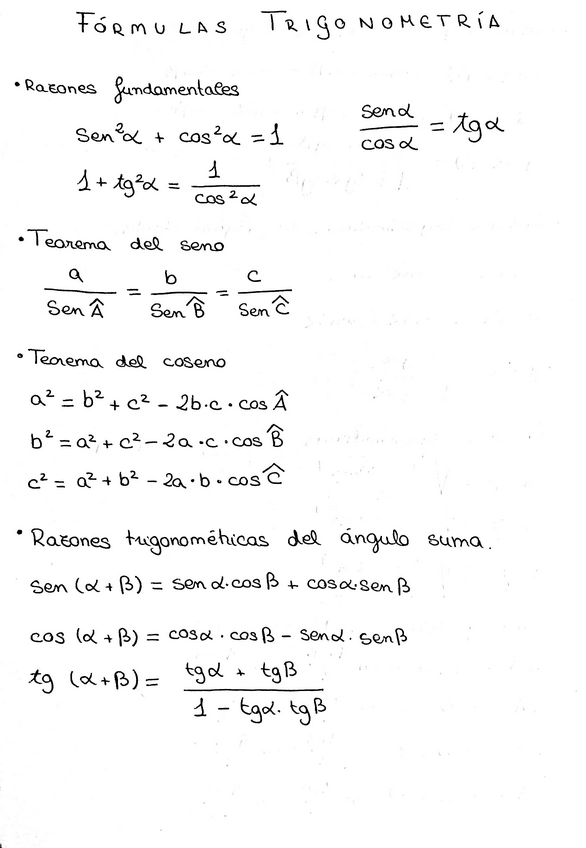 FÓRMULAS TRIGONOMETRÍA
• Razones fundamentales
sen²α + cos²α = 1
senα / cosα = tgα
1 + tg²α = 1 / cos²α
• Teorema del seno
a / Sen Â = b / Sen B̂ = c / Sen Ĉ
• Teorema del coseno
a² = b² + c² - 2b·c · cos Â
b² = a² + c² - 2a · c · cos B̂
c² = a² + b² - 2a · b · cos Ĉ
• Razones trigonométricas del ángulo suma.
sen (α + β) = sen α · cos β + cosα · sen β
cos (α + β) = cosα · cos β - senα · sen β
tg (α + β) = tgα + tgβ / 1 - tgα · tgβ